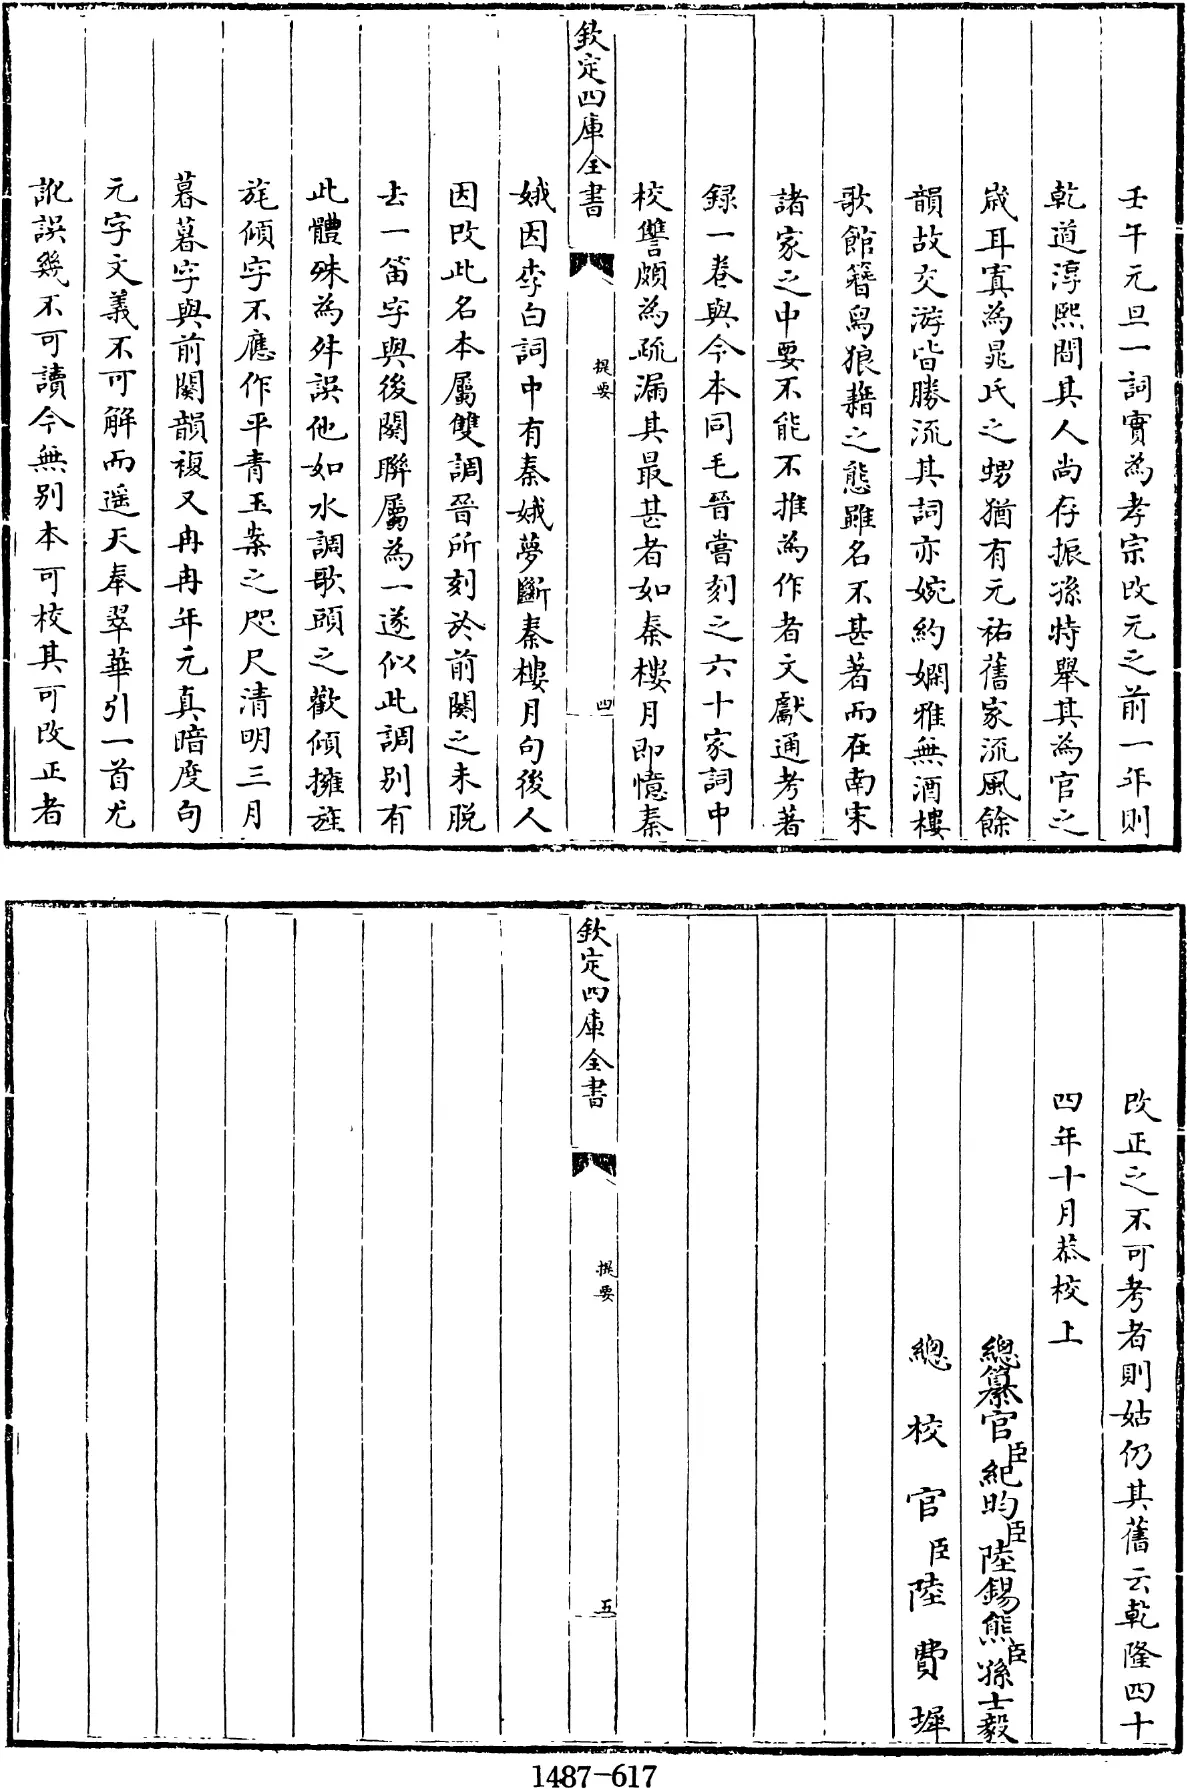 壬午元旦一詞實為孝宗改元之前一年則
乾道淳熙間其人尚存振孫特舉其為官之
歲耳寘為晁氏之甥猶有元祐舊家流風餘
韻故交游皆勝流其詞亦婉約嫻雅無酒樓
歌館簪舄狼藉之態雖名不甚著而在南宋
諸家之中要不能不推為作者文獻通考著
録一卷與今本同毛晉嘗刻之六十家詞中
校讐頗為疏漏其最甚者如秦樓月即憶秦
欽定四庫全書
提要
四
娥因李白詞中有秦娥夢斷秦樓月句後人
因改此名本屬雙調晉所刻於前闋之末脱
去一笛字與後闋聯屬為一遂似此調别有
此體殊為舛誤他如水調歌頭之歡傾擁旌
旄傾字不應作平青玉案之咫尺清明三月
暮暮字與前闋韻複又冉冉年元真暗度句
元字文義不可解而遥天奉翠華引一首尤
訛誤幾不可讀今無别本可校其可改正者
改正之不可考者則姑仍其舊云乾隆四十
四年十月恭校上
總纂官臣紀昀臣陸錫熊臣孫士毅
總校官臣陸費墀
欽定四庫全書
提要
五
1487-617